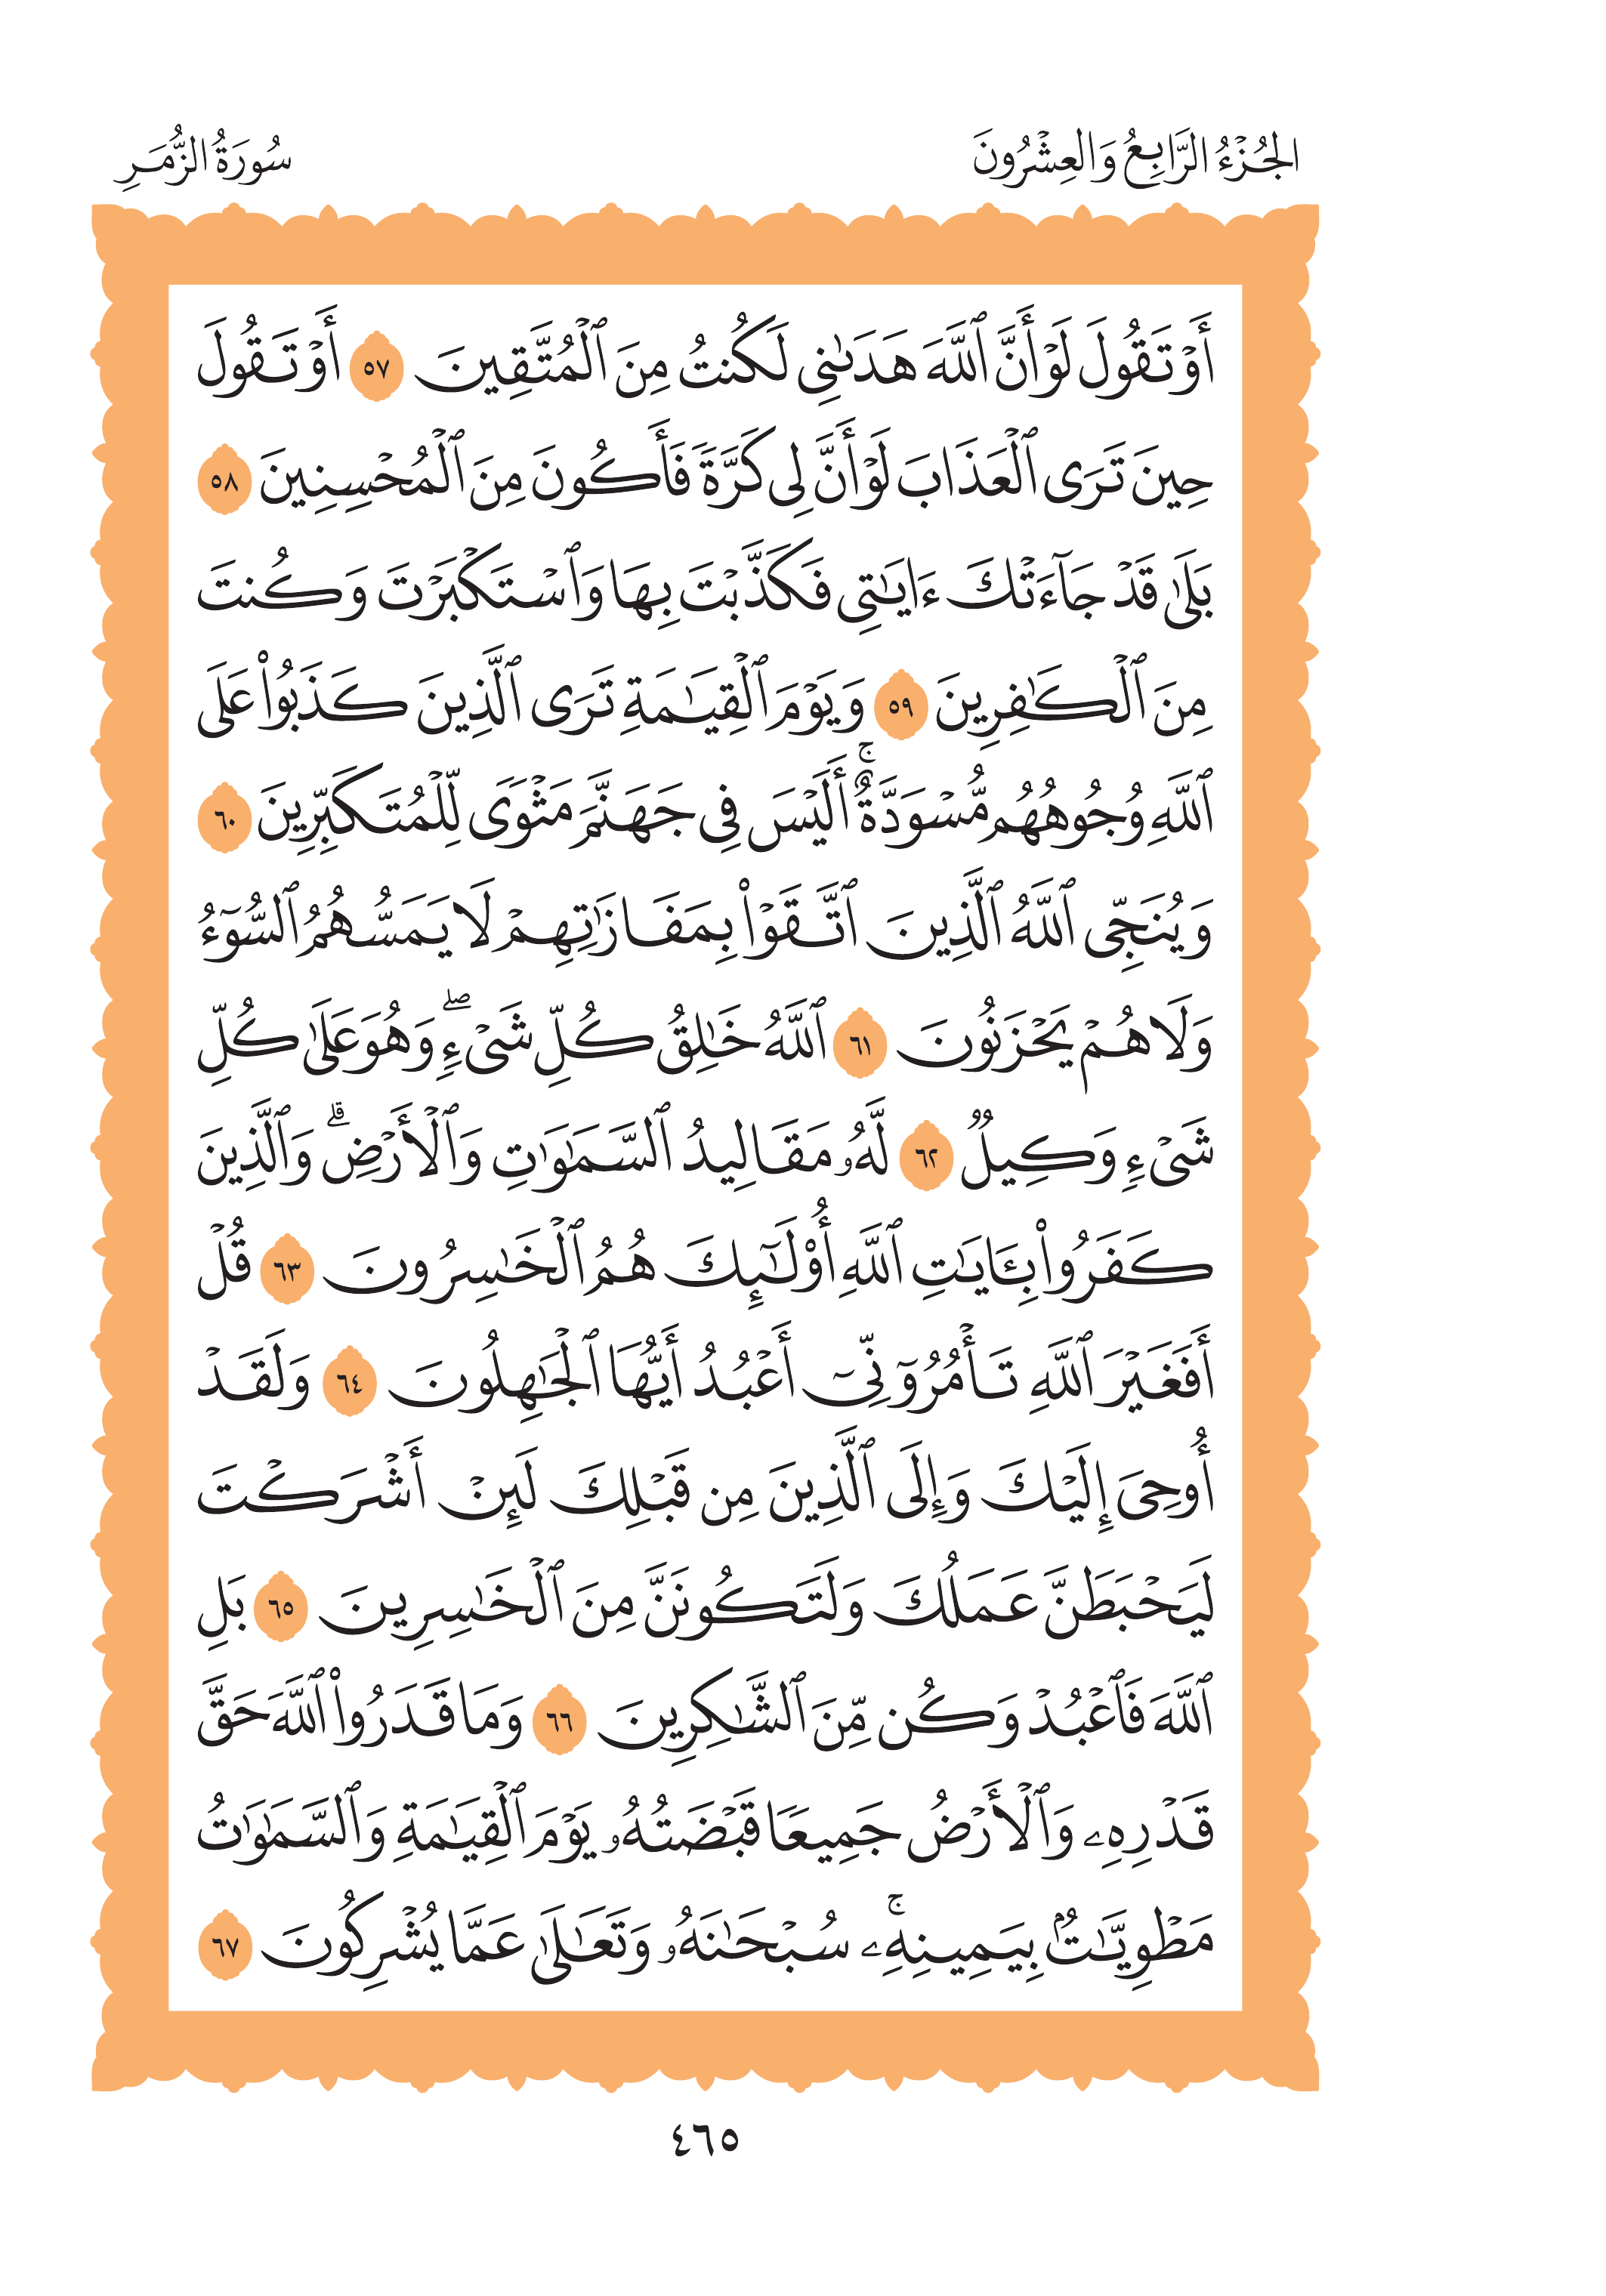 الجُزْءُ الرَّابِعُ وَالعِشْرُونَ
سُورَةُ الزُّمَرِ
أَوْ تَقُولَ لَوْ أَنَّ ٱللَّهَ هَدَىٰنِى لَكُنتُ مِنَ ٱلْمُتَّقِينَ ٥٧ أَوْ تَقُولَ
حِينَ تَرَى ٱلْعَذَابَ لَوْ أَنَّ لِى كَرَّةً فَأَكُونَ مِنَ ٱلْمُحْسِنِينَ ٥٨
بَلَىٰ قَدْ جَآءَتْكَ ءَايَـٰتِى فَكَذَّبْتَ بِهَا وَٱسْتَكْبَرْتَ وَكُنتَ
مِنَ ٱلْكَـٰفِرِينَ ٥٩ وَيَوْمَ ٱلْقِيَـٰمَةِ تَرَى ٱلَّذِينَ كَذَبُوا۟ عَلَى
ٱللَّهِ وُجُوهُهُم مُّسْوَدَّةٌ ۚ أَلَيْسَ فِى جَهَنَّمَ مَثْوًى لِّلْمُتَكَبِّرِينَ ٦٠
وَيُنَجِّى ٱللَّهُ ٱلَّذِينَ ٱتَّقَوْا۟ بِمَفَازَتِهِمْ لَا يَمَسُّهُمُ ٱلسُّوٓءُ
وَلَا هُمْ يَحْزَنُونَ ٦١ ٱللَّهُ خَـٰلِقُ كُلِّ شَىْءٍ ۖ وَهُوَ عَلَىٰ كُلِّ
شَىْءٍ وَكِيلٌ ٦٢ لَّهُۥ مَقَالِيدُ ٱلسَّمَـٰوَٰتِ وَٱلْأَرْضِ ۗ وَٱلَّذِينَ
كَفَرُوا۟ بِـَٔايَـٰتِ ٱللَّهِ أُو۟لَـٰٓئِكَ هُمُ ٱلْخَـٰسِرُونَ ٦٣ قُلْ
أَفَغَيْرَ ٱللَّهِ تَأْمُرُوٓنِّىٓ أَعْبُدُ أَيُّهَا ٱلْجَـٰهِلُونَ ٦٤ وَلَقَدْ
أُوحِىَ إِلَيْكَ وَإِلَى ٱلَّذِينَ مِن قَبْلِكَ لَئِنْ أَشْرَكْتَ
لَيَحْبَطَنَّ عَمَلُكَ وَلَتَكُونَنَّ مِنَ ٱلْخَـٰسِرِينَ ٦٥ بَلِ
ٱللَّهَ فَٱعْبُدْ وَكُن مِّنَ ٱلشَّـٰكِرِينَ ٦٦ وَمَا قَدَرُوا۟ ٱللَّهَ حَقَّ
قَدْرِهِۦ وَٱلْأَرْضُ جَمِيعًا قَبْضَتُهُۥ يَوْمَ ٱلْقِيَـٰمَةِ وَٱلسَّمَـٰوَٰتُ
مَطْوِيَّـٰتٌۢ بِيَمِينِهِۦ ۚ سُبْحَـٰنَهُۥ وَتَعَـٰلَىٰ عَمَّا يُشْرِكُونَ ٦٧
٤٦٥